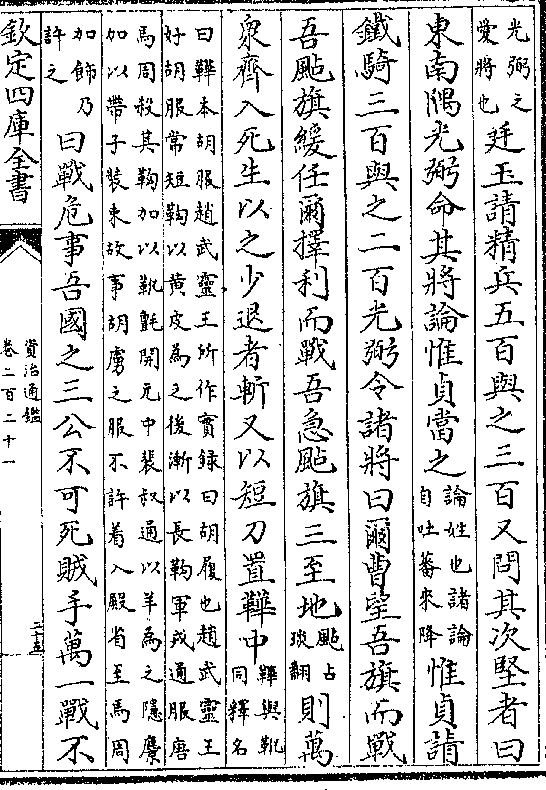 光弼之
愛將也
廷玉請精兵五百與之三百又問其次堅者曰
東南隅光弼命其將論惟貞當之
論姓也諸論
自吐蕃來降
惟貞請
鐵騎三百與之二百光弼令諸將曰爾曹望吾旗而戰
吾颭旗緩任爾擇利而戰吾急颭旗三至地
颭占
琰翻
則萬
衆齊入死生以之少退者斬又以短刀置鞾中
鞾與靴
同釋名
曰鞾本胡服趙武靈王所作實録曰胡履也趙武靈王
好胡服常短靿以黄皮為之後漸以長靿軍戎通服唐
馬周殺其靿加以靴氊開元中裴叔通以羊為之隱麖
加以帶子裝束故事胡虜之服不許着入殿省至馬周
加飾乃
許之
曰戰危事吾國之三公不可死賊手萬一戰不
欽定四庫全書
資治通鑑
卷二百二十一
二十五